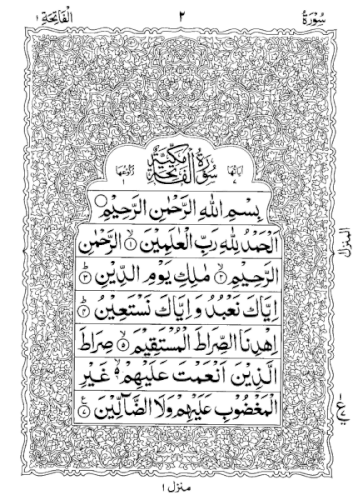 سُوْرَةُ ٢ اَلْفَاتِحَة ١
سُوْرَةُ الْفَاتِحَةِ مَكِّيَّةٌ
اٰيَاتُهَا ٧
رُكُوْعُهَا ١
بِسْمِ اللهِ الرَّحْمٰنِ الرَّحِيْمِ
اَلْحَمْدُ لِلّٰهِ رَبِّ الْعٰلَمِيْنَ ١ الرَّحْمٰنِ
الرَّحِيْمِ ٢ مٰلِكِ يَوْمِ الدِّيْنِ ٣
اِيَّاكَ نَعْبُدُ وَ اِيَّاكَ نَسْتَعِيْنُ ٤
اِهْدِنَا الصِّرَاطَ الْمُسْتَقِيْمَ ٥ صِرَاطَ
الَّذِيْنَ اَنْعَمْتَ عَلَيْهِمْ ٦ غَيْرِ
الْمَغْضُوْبِ عَلَيْهِمْ وَلَا الضَّآلِّيْنَ ٧
المنزل ١
منزل ١